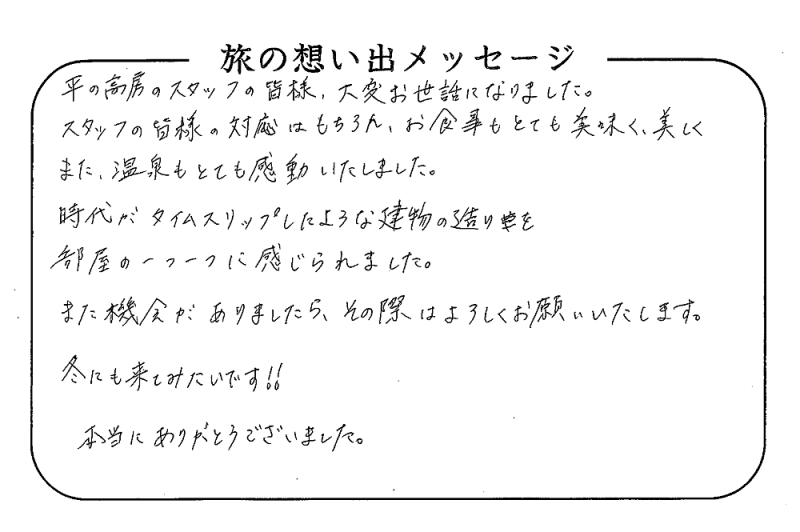 旅の想い出メッセージ
平の高房のスタッフの皆様、大変お世話になりました。
スタッフの皆様の対応はもちろん、お食事もとても美味く、美しく
また、温泉もとても感動いたしました。
時代がタイムスリップしたような建物の造りを
部屋の一つ一つに感じられました。
また機会がありましたら、その際はよろしくお願いいたします。
冬にも来てみたいです!!
本当にありがとうございました。